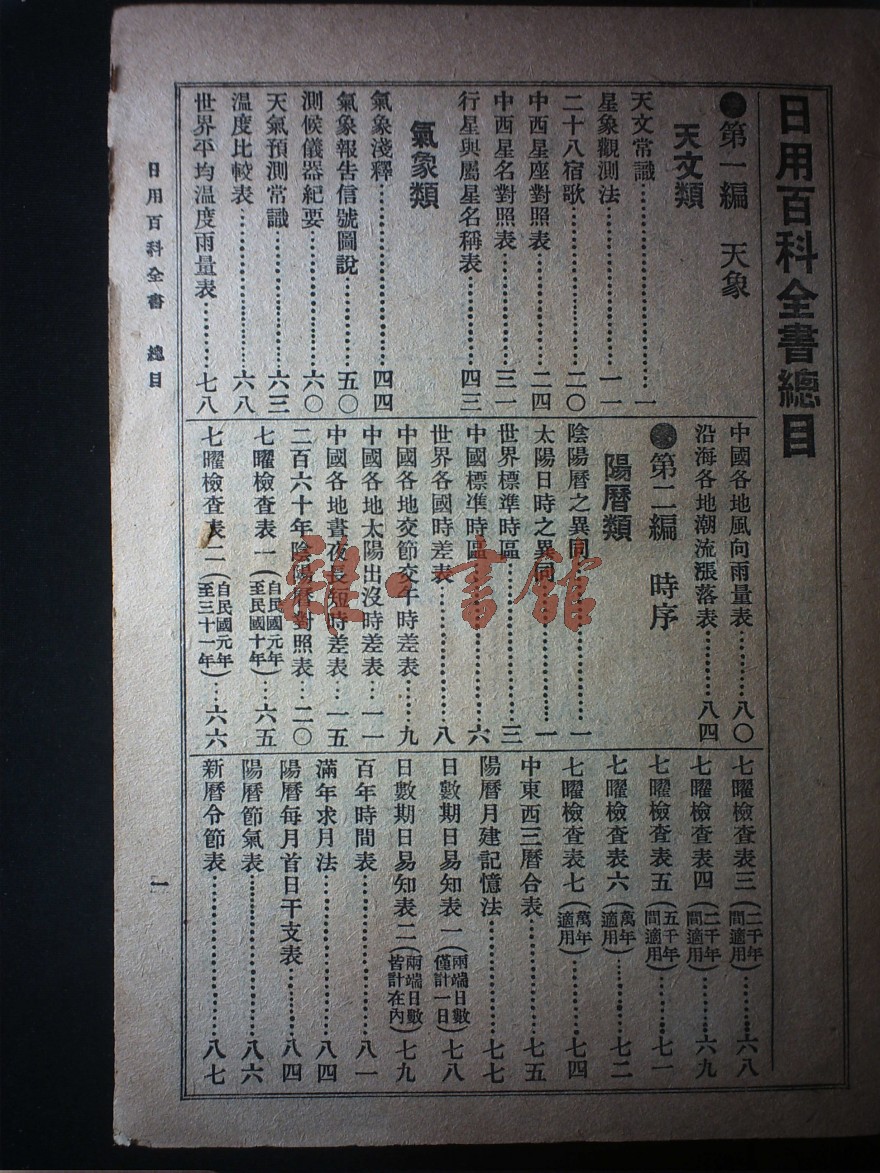 日用百科全書總目
第一編　天象
天文類
天文常識……一
星象觀測法……一一
二十八宿歌……二〇
中西星座對照表……二四
中西星名對照表……三一
行星與屬星名稱表……四三
氣象類
氣象淺釋……四四
氣象報告信號圖說……五〇
測候儀器紀要……六〇
天氣預測常識……六三
溫度比較表……六八
世界平均溫度雨量表……七八
中國各地風向雨量表……八〇
沿海各地潮流漲落表……八四
第二編　時序
陽曆類
陰陽曆之異同……一
太陽日時之異同……一
世界標準時區……三
中國標準時區……六
世界各國時差表……八
中國各地交節交午時差表……九
中國各地太陽出沒時差表……一一
中國各地晝夜長短時差表……一五
二百六十年陰陽曆對照表……二〇
七曜檢查表一（自民國元年至民國十年）……六五
七曜檢查表二（自民國元年至三十一年）……六六
七曜檢查表三（二千年間適用）……六八
七曜檢查表四（二千年間適用）……六九
七曜檢查表五（五千年間適用）……七一
七曜檢查表六（萬年適用）……七二
七曜檢查表七（萬年適用）……七四
中東西三曆合表……七五
陽曆月建記憶法……七七
日數期日易知表一（兩端日數僅計一日）七八
日數期日易知表二（兩端日數皆計在內）七九
百年時間表……八一
滿年求月法……八四
陽曆每月首日干支表……八四
陽曆節氣表……八六
新曆令節表……八七
日用百科全書　總目
一